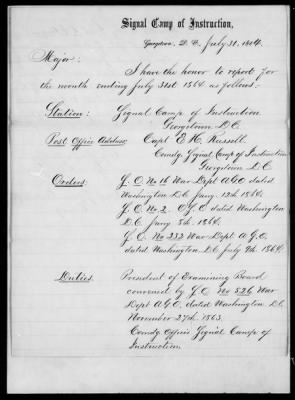 Signal Camp of Instruction,
Georgetown, D.C. July 31, 1864.
Major:
I have the honor to report for
the month ending July 31st 1864 as follows:
Station: Signal Camp of Instruction
Georgetown D.C.
Post Office Address: Capt E. H. Russell.
Comdg Signal Camp of Instruction
Georgetown D.C.
Orders: S.O. No 16 War Dept A.G.O. dated
Washington D.C. Jany. 12th 1864.
S.O. No 2. O.S.O. dated Washington
D.C. Jany. 5th 1864.
S.O. No 232 War Dept A.G.O.
dated Washington, D.C. July 9th 1864.
Duties. President of Examining Board
convened by S.O. No 526 War
Dept A.G.O. dated Washington D.C.
November 27th 1863.
Comdg Officer Signal Camp of
Instruction